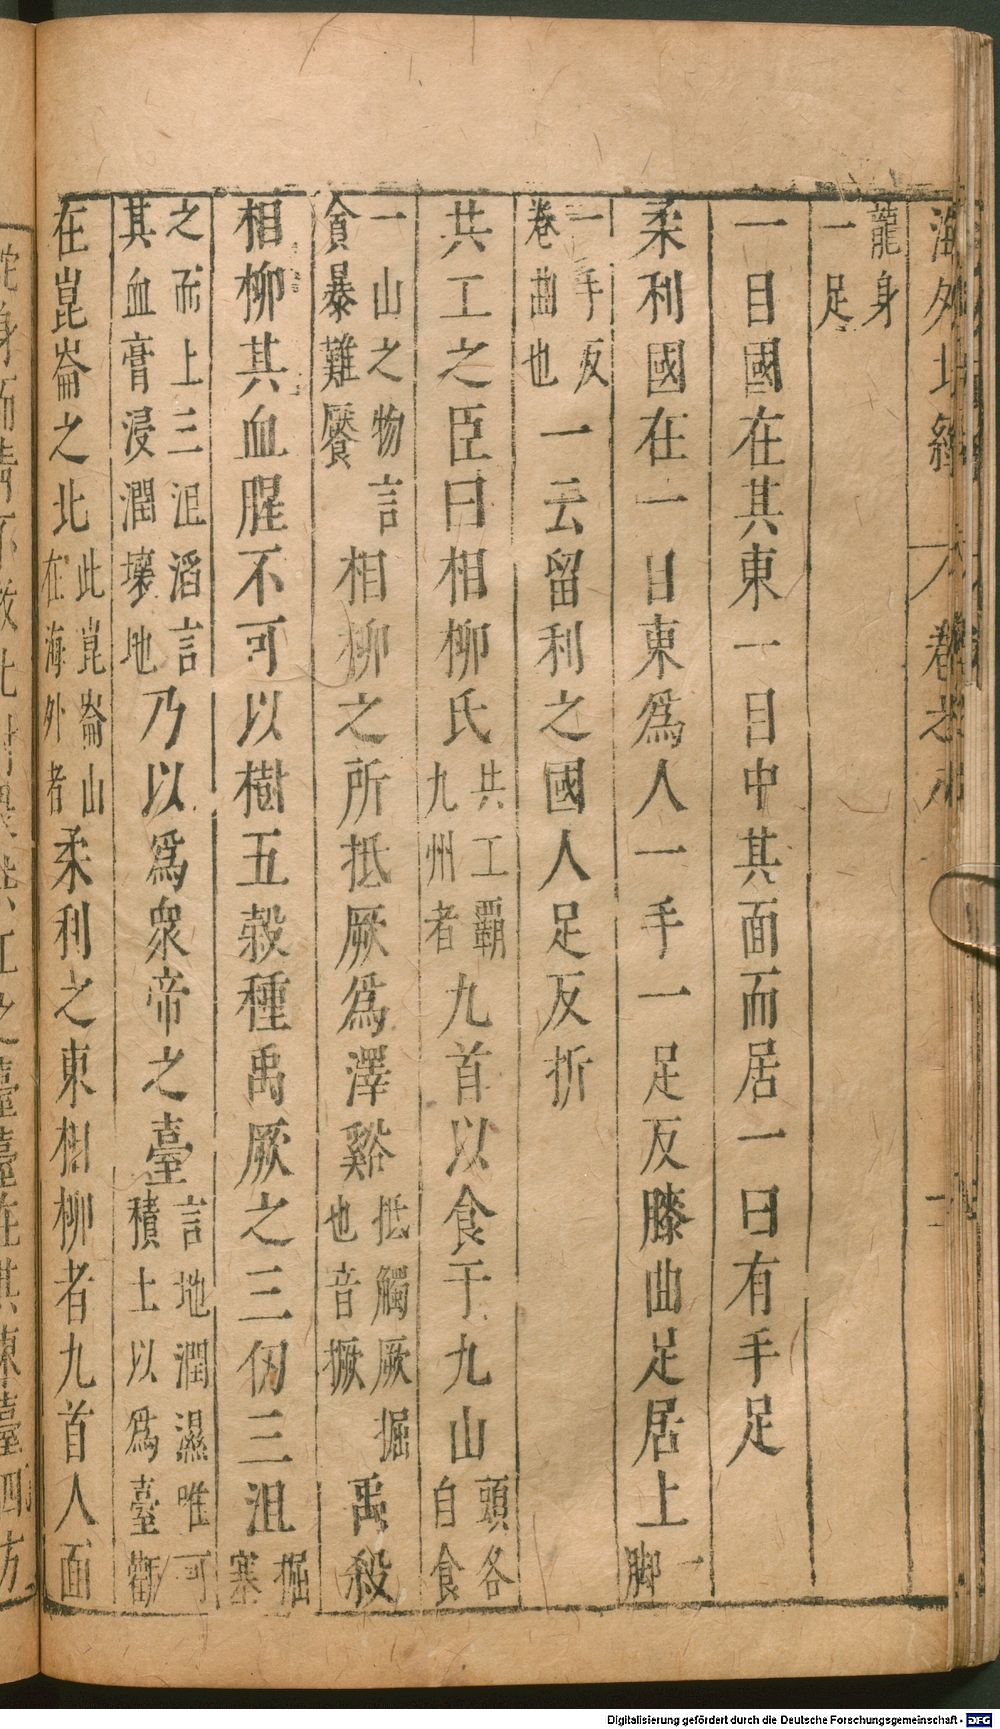 海外北經 卷之八
龍身
一足
一目國在其東一目中其面而居一曰有手足
柔利國在一目東爲人一手一足反膝曲足居上一
脚
一手反
卷曲也
一云留利之國人足反折
共工之臣曰相柳氏共工霸
九州者九首以食于九山頭各
自食
一山之物言
貪暴難饜相柳之所抵厥爲澤谿抵觸厥掘
也音撅禹殺
相柳其血腥不可以樹五穀種禹厥之三仞三沮掘
塞
之而上三沮滔言
其血膏浸潤壞地乃以爲衆帝之臺言地潤濕唯可
積土以爲臺觀
在崑崙之北此崑崙山
在海外者柔利之東相柳者九首人面
Digitalisierung gefördert durch die Deutsche Forschungsgemeinschaft - DFG